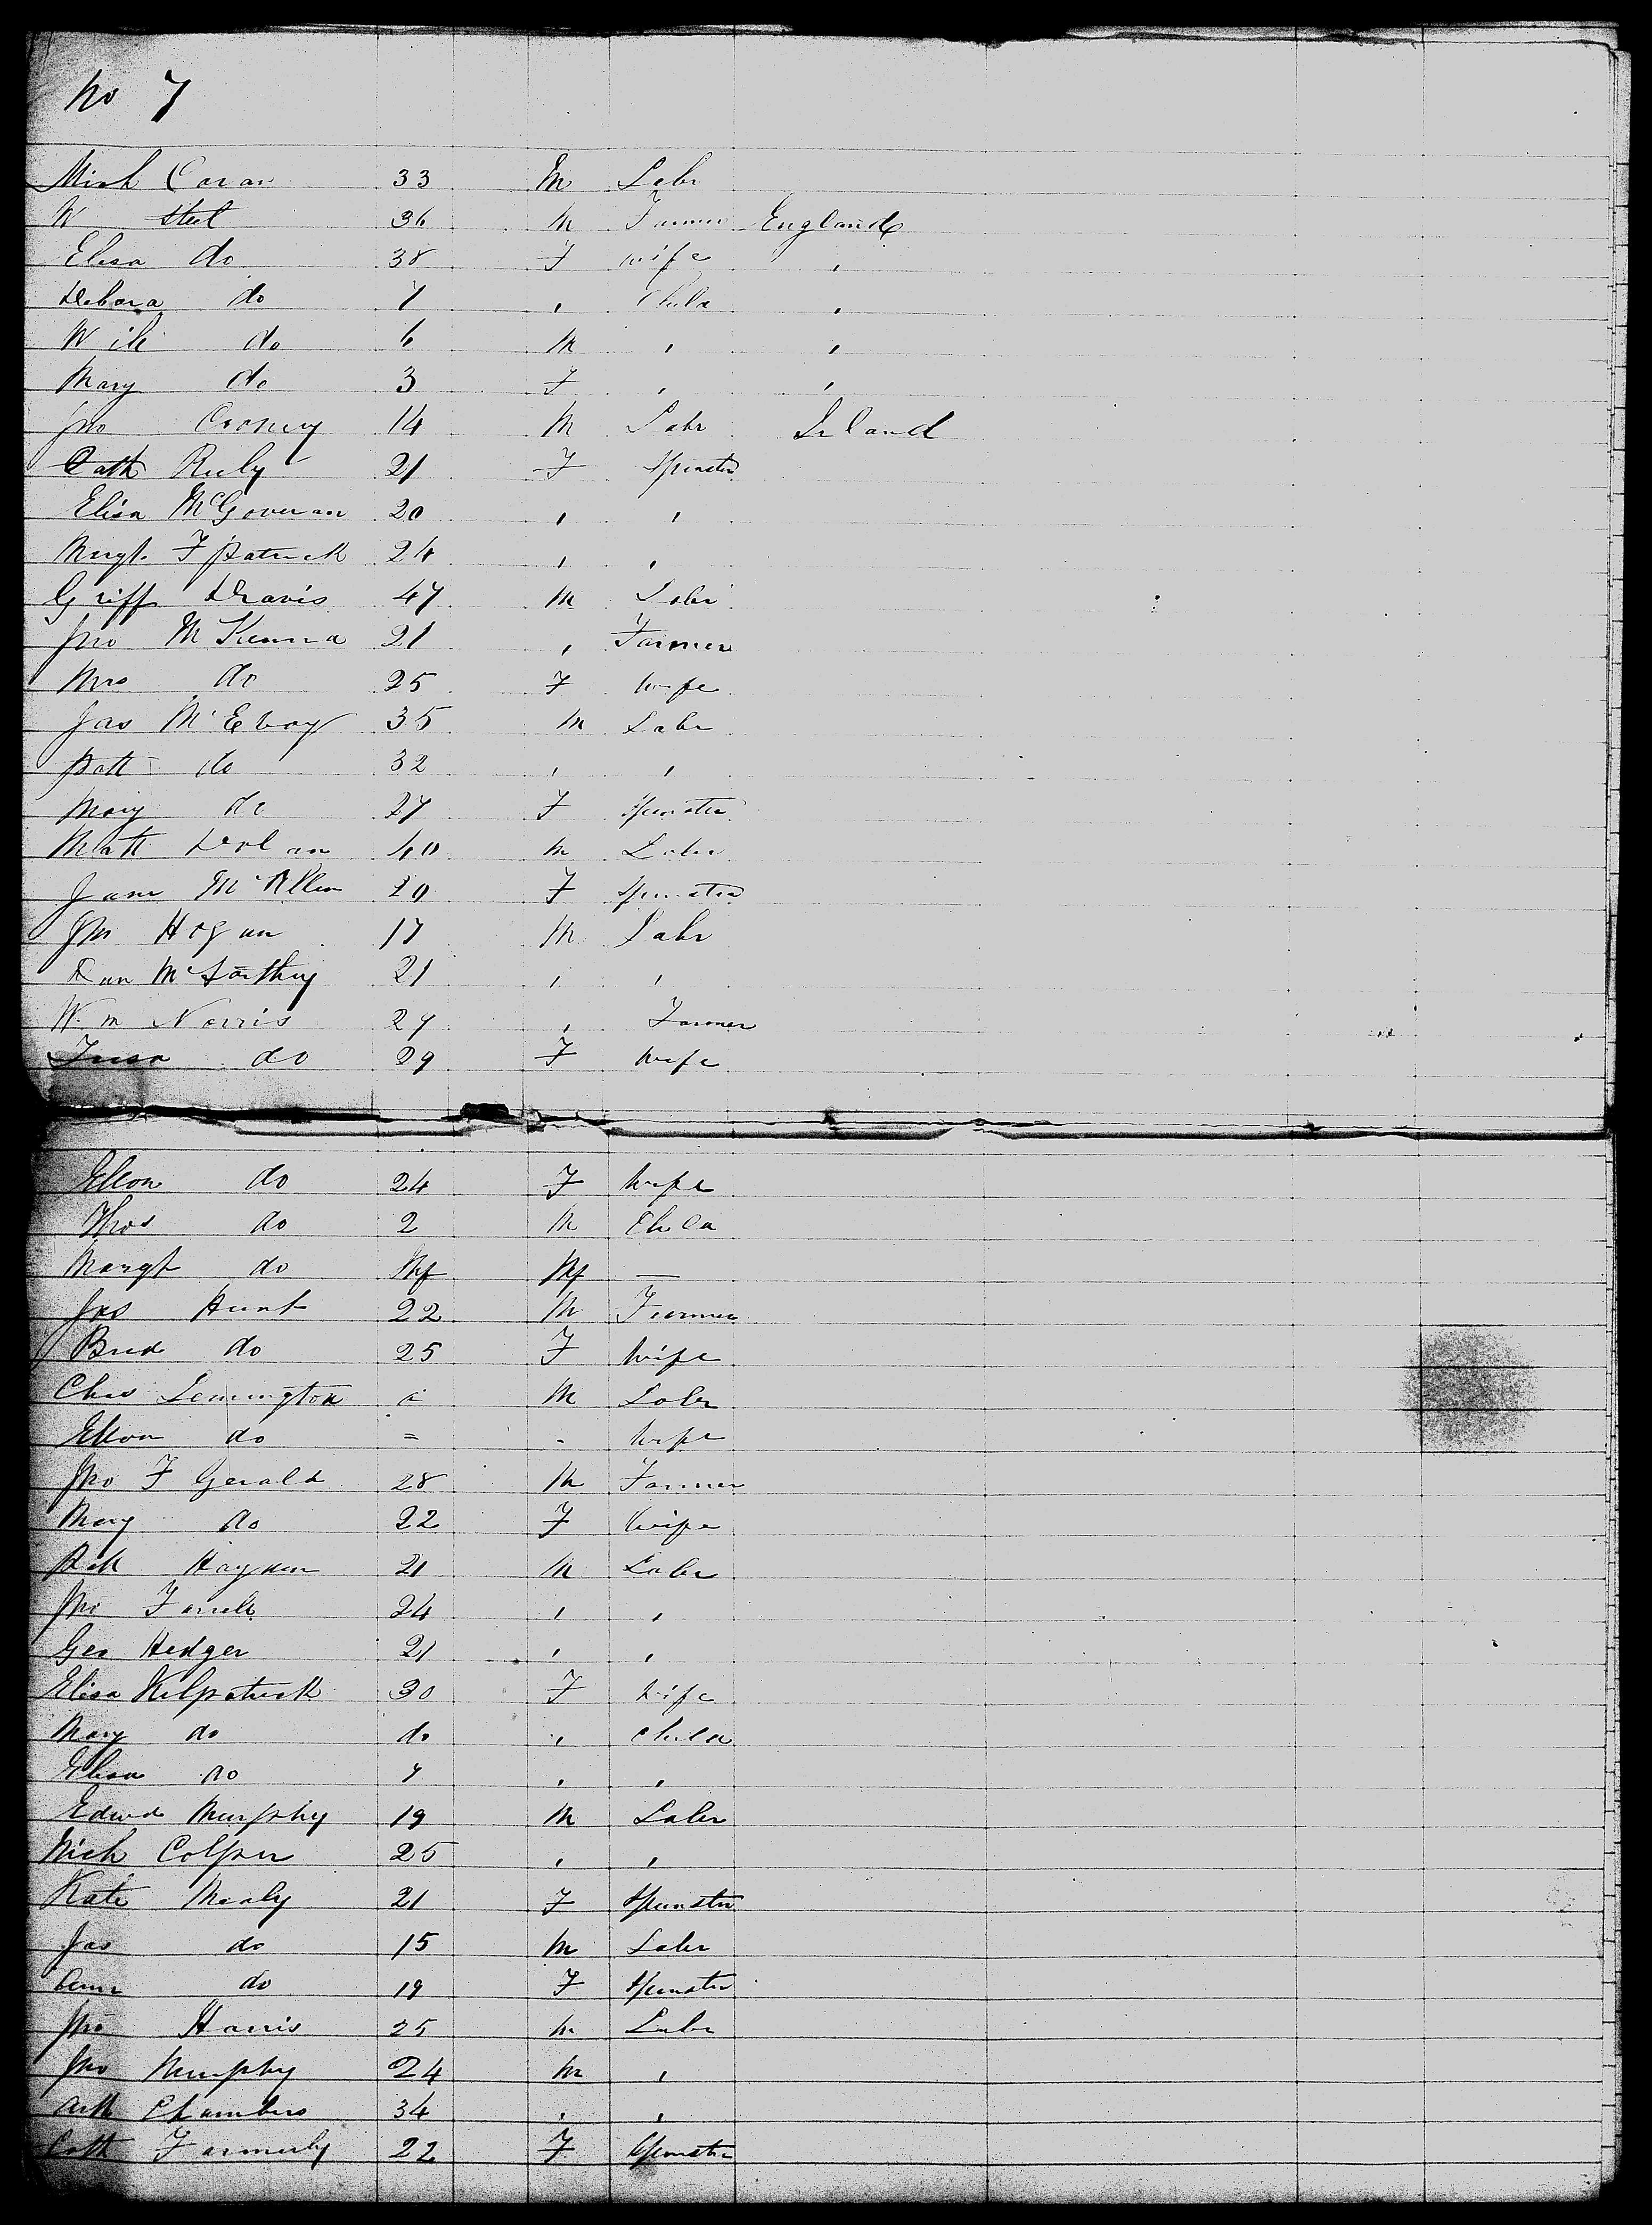 No 7
Mich Caran 33 M Labr
W Steel 36 M Farmer England
Elisa do 38 F wife "
Debora do 7 " Child "
Will do 6 M " "
Mary do 3 F " "
Jno Cooney 14 M Labr Irland
Cath Riely 21 F Spinster
Elisa McGoveran 20 " "
Margt F patrick 24 " "
Griff Davis 47 M Labr
Jno McKenna 21 " Farmer
Mrs do 25 F wife
Jas McEvoy 35 M Labr
Patt do 32 " "
Mary do 27 F Spinster
Matt Dolan 40 M Labr
Jane McAllen 20 F Spinster
Jno Hogan 17 M Labr
Dan McCarthy 21 " "
Wm Norris 27 " Farmer
do 29 F wife
Ellon do 24 F wife
Thos do 2 M Child
Margt do Inf Inf —
Jas Hunt 22 M Farmer
Brid do 25 F wife
Chas Lemington M Labr
Ellon do = - wife
Jno F Gerald 28 M Farmer
Mary do 22 F wife
Patt Hayden 21 M Labr
Jno Farrell 24 " "
Geo Hedger 21 " "
Elisa Kilpatrick 30 F wife
Mary do do " child
Elisa do 7 " "
Edwd Murphy 19 M Labr
Nich Colfer 25 " "
Kate Mealy 21 F Spinster
Jas do 15 M Labr
Ann do 19 F Spinster
Jno Harris 25 M Labr
Jno Murphy 24 M "
Arth Chambers 34 " "
Cath Farmerly 22 F Spinster